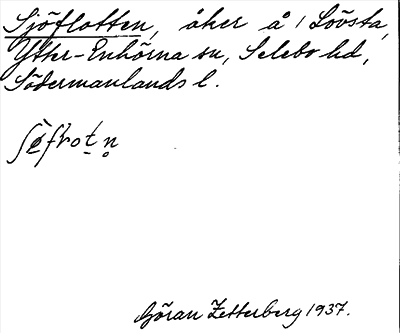 Sjöflotten, åker å 1 Lövsta,
Ytter-Enhörna sn, Selebo hd,
Södermanlands l.
Göran Zetterberg 1937.